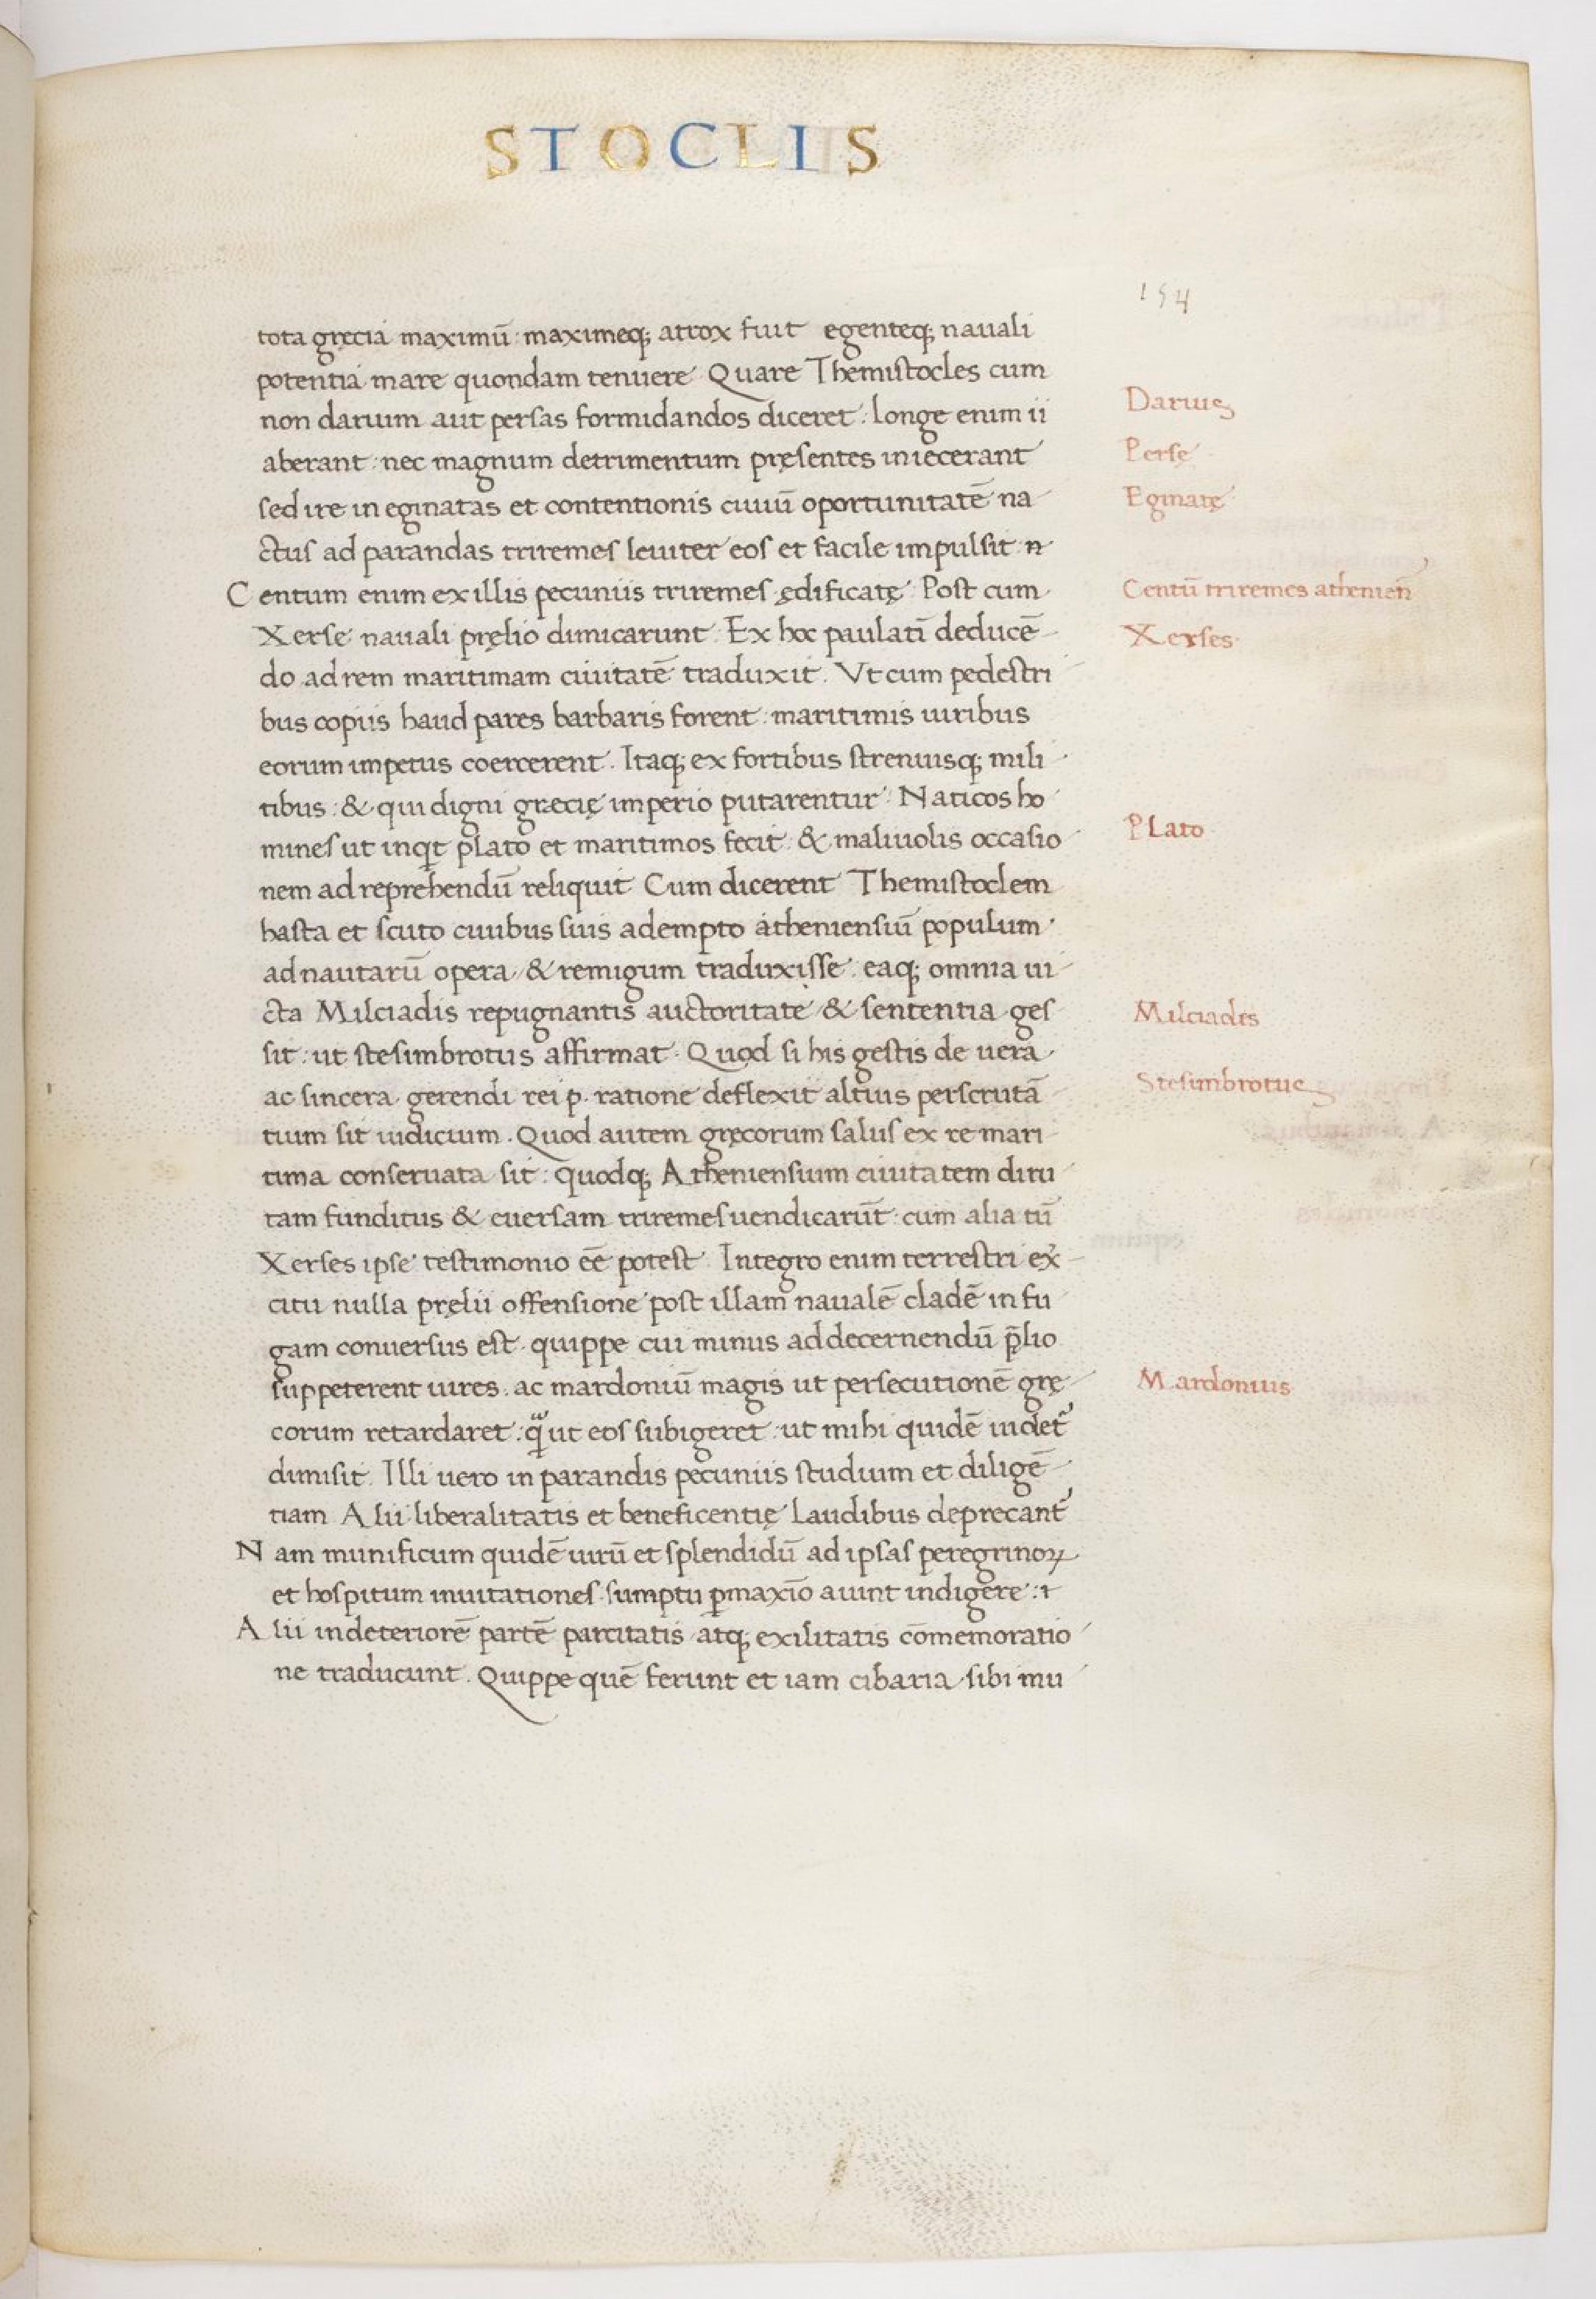 STOCLIS
154
tota gręcia maximū: maximeq; atrox fuit egenteq; nauali
potentia mare quondam tenuere Quare Themistocles cum
non darium aut persas formidandos diceret: longe enim ii
aberant: nec magnum detrimentum pręsentes iniecerant
sed ire in eginatas et contentionis ciuiū oportunitatē na
ctus ad parandas triremes leuiter eos et facile impulsit
Centum enim ex illis pecuniis triremes ędificatę Post cum
Xerse nauali pręlio dimicarunt. Ex hoc paulatī deducē
do ad rem maritimam ciuitatē traduxit. Vt cum pedestri
bus copiis haud pares barbaris forent: maritimis uiribus
eorum impetus coercerent. Itaq; ex fortibus strenuisq; mili
tibus: & qui digni grecię imperio putarentur: Naticos ho
mines ut inqt plato et maritimos fecit: & maliuolis occasio
nem ad reprehendū reliquit Cum dicerent Themistoclem
hasta et scuto ciuibus suis adempto atheniensiū populum
ad nautarū opera & remigum traduxisse: eaq; omnia ui
cta Milciadis repugnantis auctoritate & sententia ges
sit: ut stesimbrotus affirmat. Quod si his gestis de uera
ac sincera gerendi rei p. ratione deflexit altius perscrutā
tium sit iudicium. Quod autem gręcorum salus ex re mari
tima conseruata sit: quodq; Atheniensium ciuitatem diru
tam funditus & euersam triremes uendicarūt: cum alia tū
Xerses ipse testimonio eē potest Integro enim terrestri ex
citu nulla pręlii offensione post illam naualē cladē in fu
gam conuersus est. quippe cui minus ad decernendū p̄lio
suppeterent uires. ac mardoniū magis ut persecutionē grę
corum retardaret: q̄ ut eos subigeret: ut mihi quidē uidet
dimisit. Illi uero in parandis pecuniis studium et diligē
tiam Alii liberalitatis et beneficentię laudibus deprecant
Nam munificum quidē uirū et splendidū ad ipsas peregrinoꝝ
et hospitum inuitationes sumptu p̱maxīo aiunt indigere
Alii in deteriorē partē parcitatis atq; exilitatis cōmemoratio
ne traducunt. Quippe quē ferunt et iam cibaria sibi mu
Darius
Perse
Eginatę
Centū triremes athenien̄
Xerses
Plato
Milciades
Stesimbrotus
Mardonius